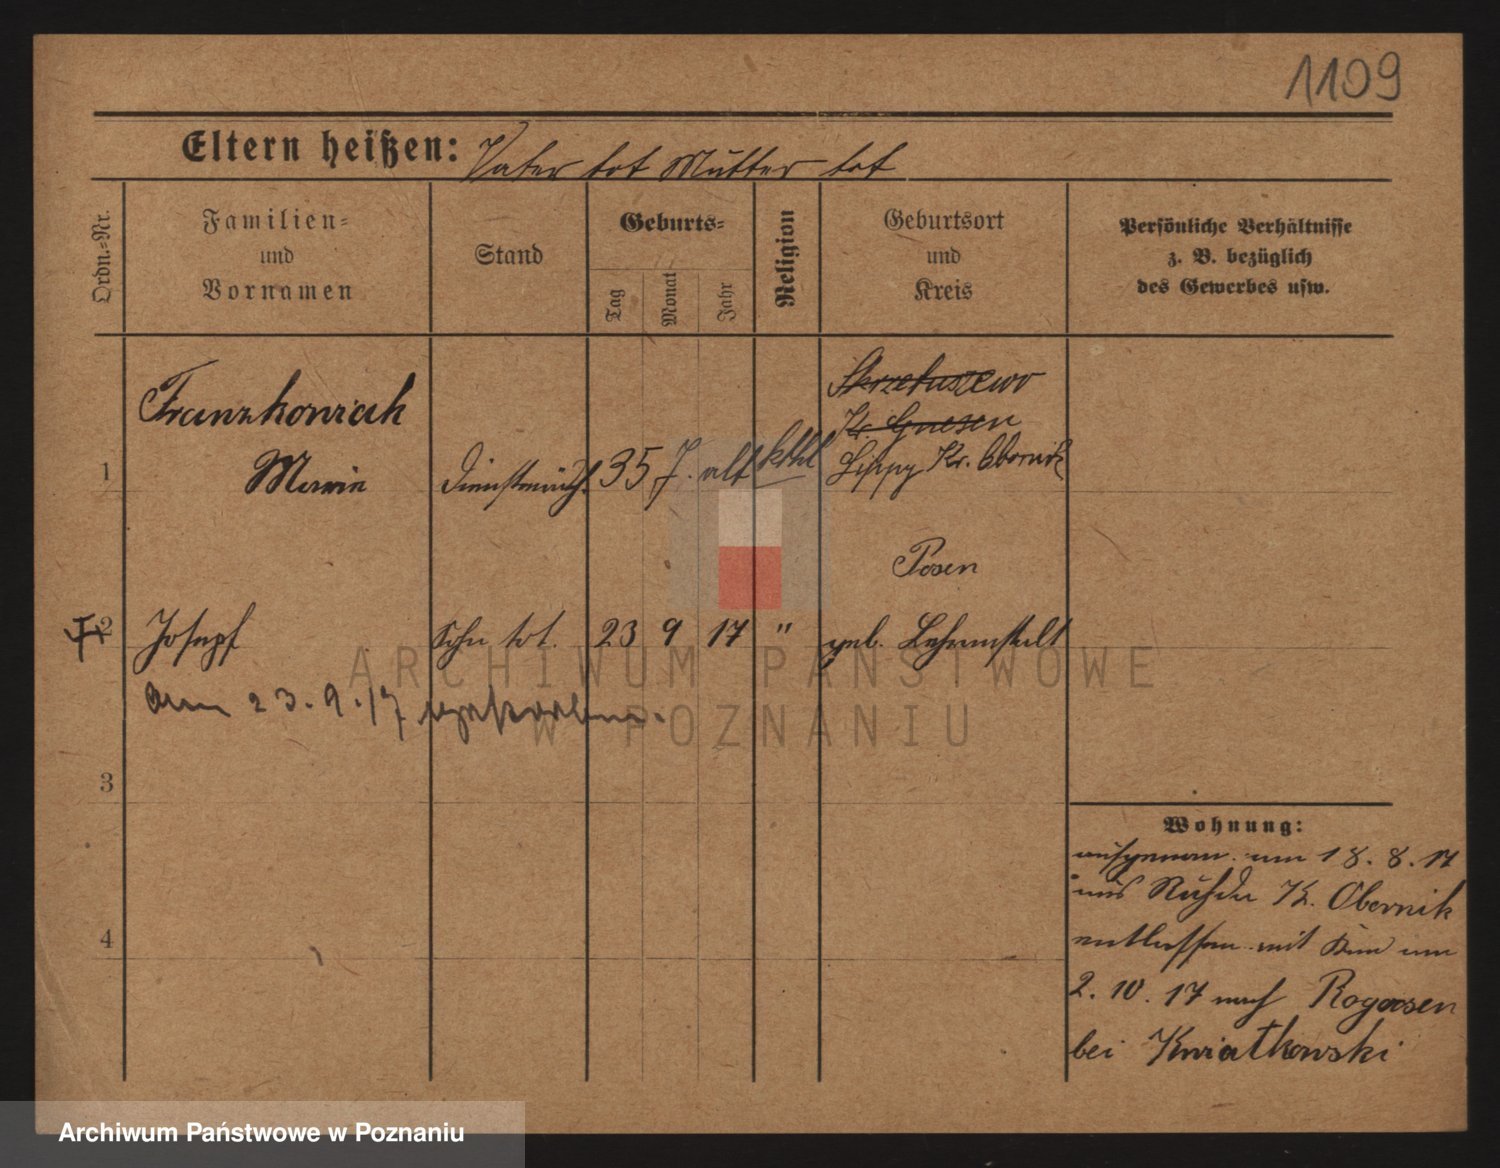 1109
Eltern heißen: Vater tot Mutter tot
Ordn.-Nr.
Familien-
und
Vornamen
Stand
Geburts-
Tag
Monat
Jahr
Religion
Geburtsort
und
Kreis
Persönliche Verhältnisse
z. B. bezüglich
des Gewerbes usw.
Skrzetuszewo
Kr. Gnesen
Franzkowiak
1 Marie Dienstmäd. 35 J. alt kthl Lippy Kr. Obornik
Posen
2 Josepf Sohn tot. 23 9 17 " geb.
am 23.9.17
3
4
Wohnung:
aufgenom. am 18.8.17
aus Kr. Obernik
entlassen mit am
2.10.17 nach Rogasen
bei Kwiatkowski
ARCHIWUM PAŃSTWOWE
W POZNANIU
Archiwum Państwowe w Poznaniu